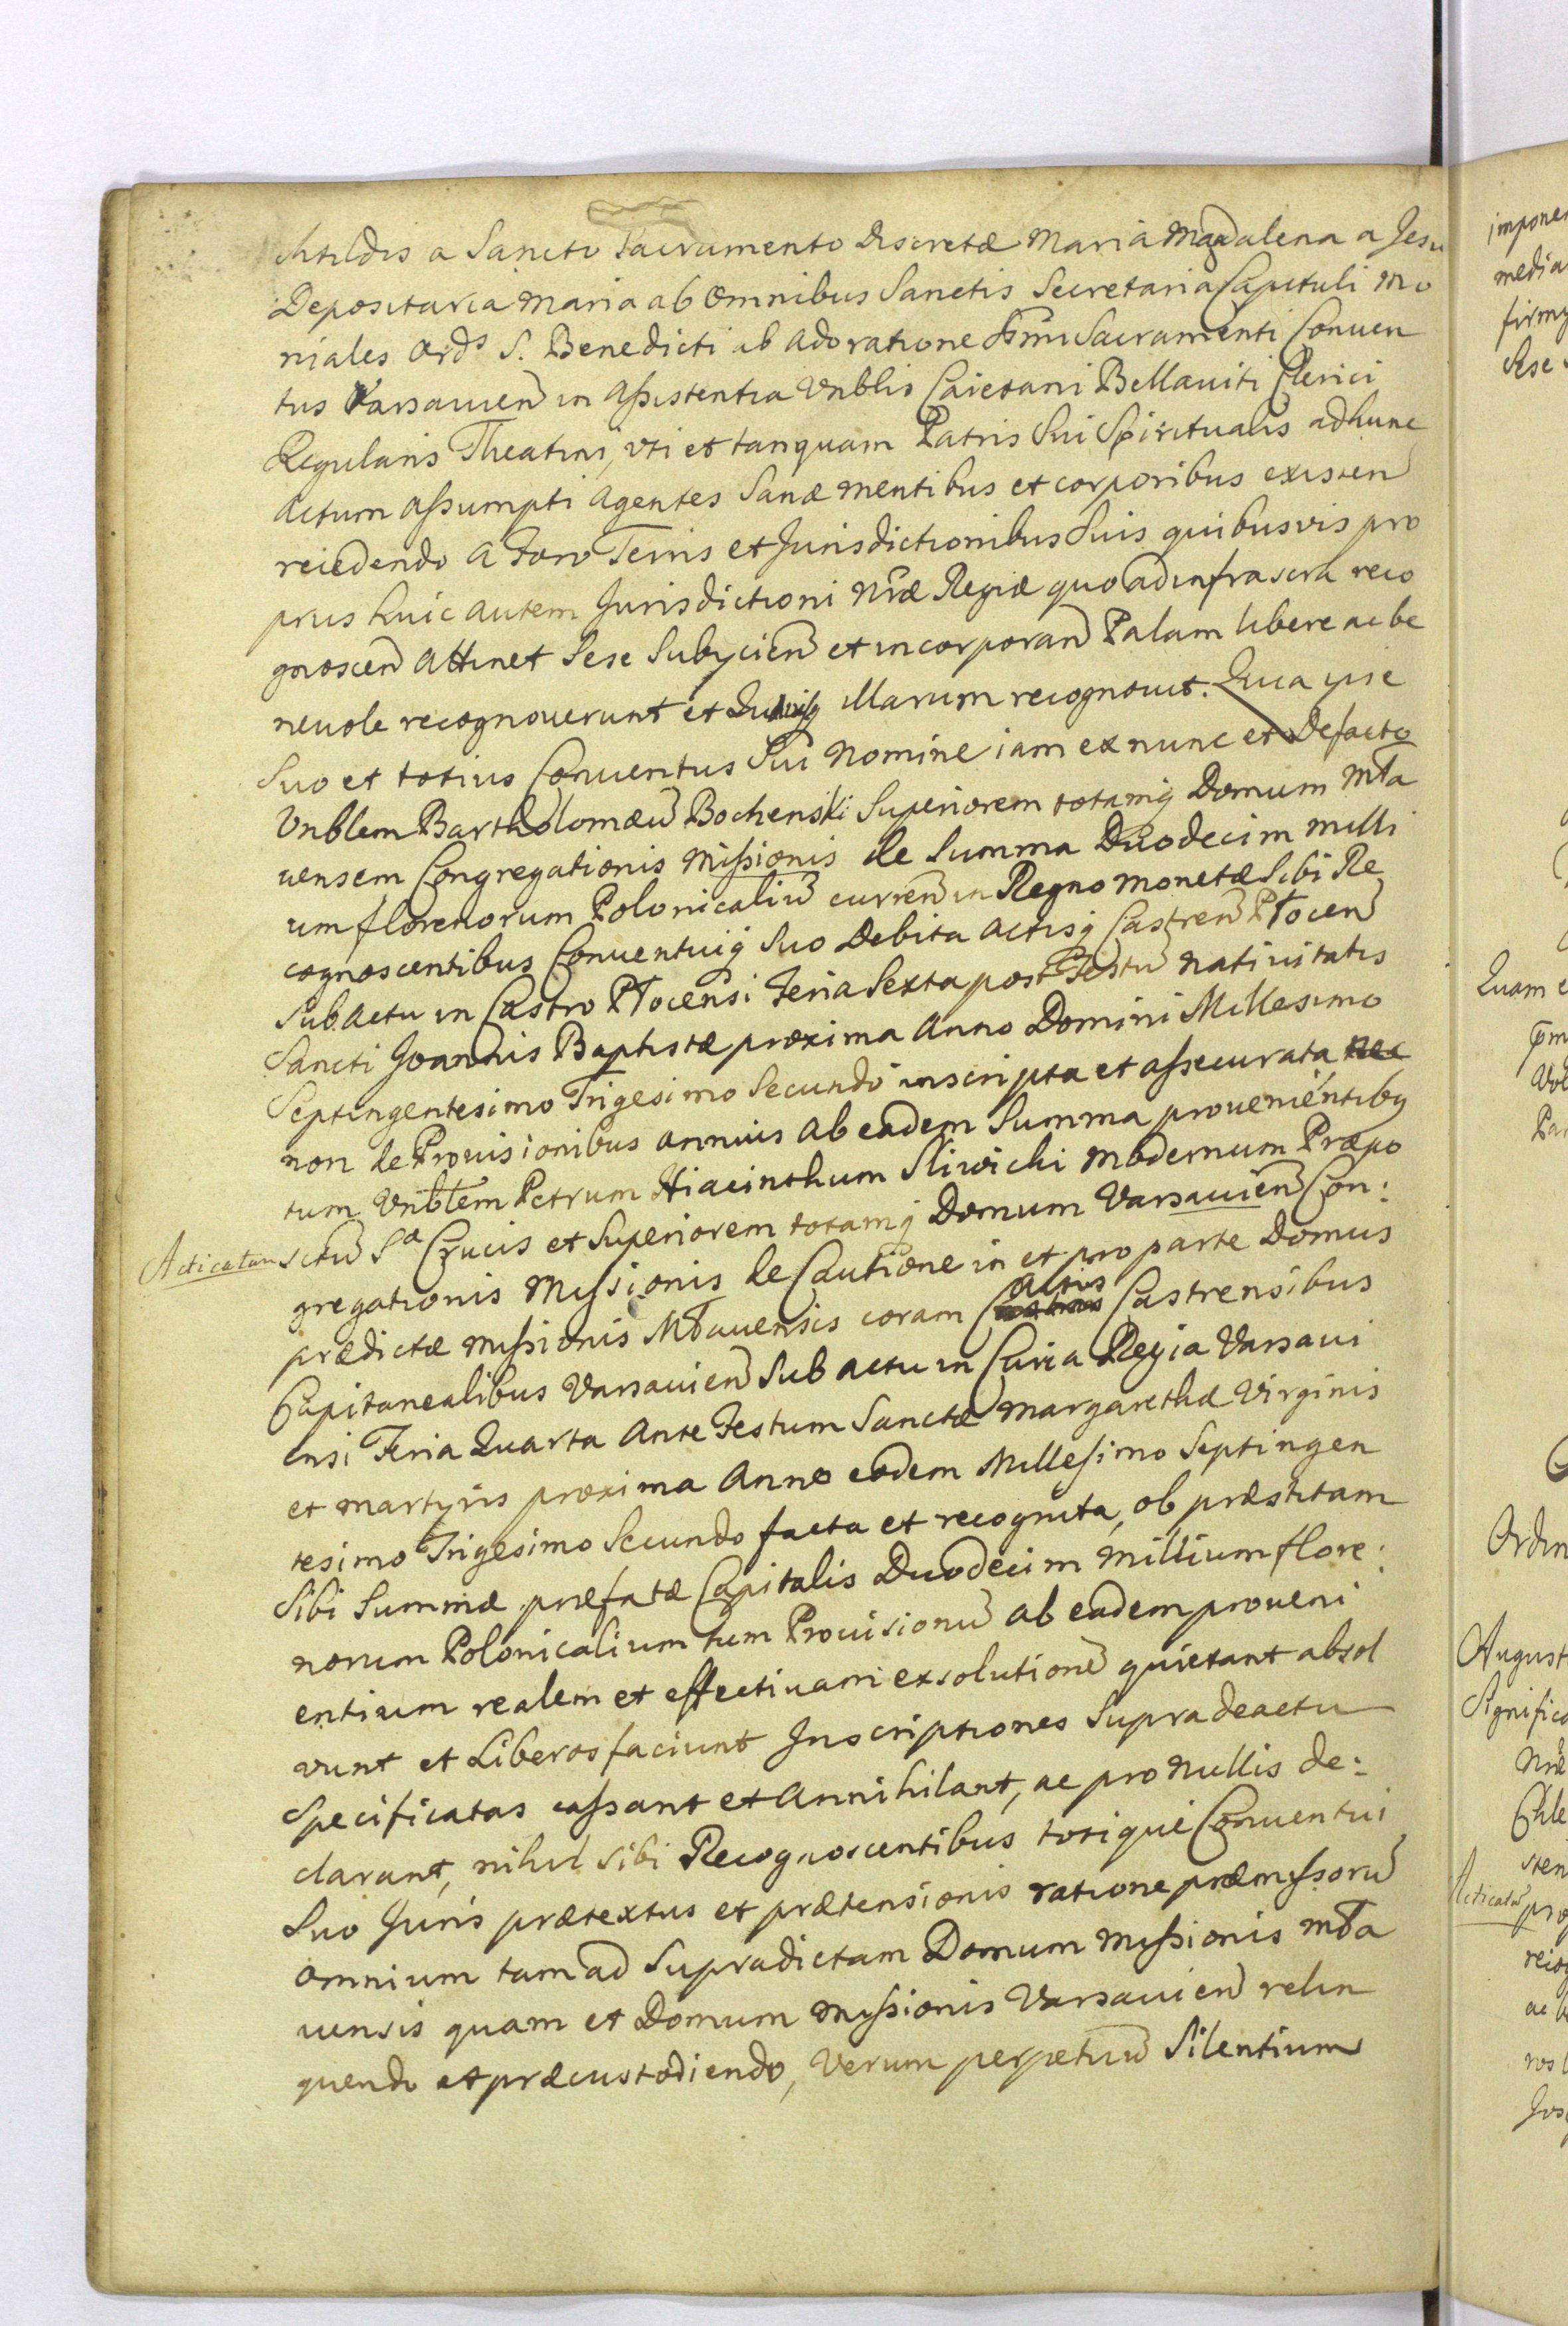 chtildis a Sancto Sacramento Discretæ Maria Magdalena a Jesu
Depositaria Maria ab Omnibus Sanctis Secretaria Capituli Mo
niales Ord⁵ S. Benedicti ab Adoratione SSmi Sacramenti Conuen
tus Varsauien in assistentia Vnblis Caietani Bellauiti Clerici
Regularis Theatini, vti et tanquam Patris Sui Spiritualis adhunc
Actum assumpti Agentes Sanæ mentibus et corporibus existen
recedendo a Foro Terris et Jurisdictionibus Suis quibusvis pro
prijs huic autem Jurisdictioni Nræ Regiæ quo ad infrascra reco
gnoscen attinet Sese Subycien et incorporan Palam libere ac be
neuole recognouerunt et illarum recognouit. Quia ipse
Suo et totius Conuentus Sui Nomine iam ex nunc et Defacto
Vnblem Bartholomæu Bochenski Superiorem totamq Domum Mła
uensem Congregationis Missionis de Summa Duodecim milli
um florenorum Polonicaliu curren in Regno monetæ Sibi Re
cognoscentibus Conuentuiq Suo Debita Actisq Castren Płocen
Sub Actu in Castro Płocensi Feria Sexta post Festu Natiuitatis
Sancti Joannis Baptistæ proxima Anno Domini Millesimo
Septingentesimo Trigesimo Secundo inscripta et assecurata nec
non de Prouisionibus annuis ab eadem Summa prouenientibq
tum Vnblem Petrum Hiacinthum Sliwicki Modernum Præpo
Acticatum situ S̃ª Crucis et Superiorem totamq Domum Varsauien Con:
gregationis Missionis de Cautione in et pro parte Domus
prædictæ Missionis Mławensis coram Actis Castrensibus
Capitanealibus Varsauien Sub actu in Curia Regia Varsaui
ensi Feria Quarta Ante Festum Sanctæ Margarethæ Virginis
et Martyris proxima Anno eodem Millesimo Septingen
tesimo Trigesimo Secundo facta et recognita, ob præstitam
Sibi Summæ præfatæ Capitalis Duodecim millium flore:
norum Polonicalium tum Prouisionu ab eadem proueni
entium realem et effectiuam exsolutione quietant absol
uunt et Liberos faciunt Inscriptiones Supra deactu
Specificatas cassant et Annihilant, ac pro Nullis de:
clarant, nihil sibi Recognoscentibus totique Conuentui
Suo Juris prætextus et prætensionis ratione præmissoru
omnium tam ad Supradictam Domum Missionis Mła
uensis quam et Domum Missionis Varsauien relin
quendo et præcustodiendo, Verum perpetuu Silentium